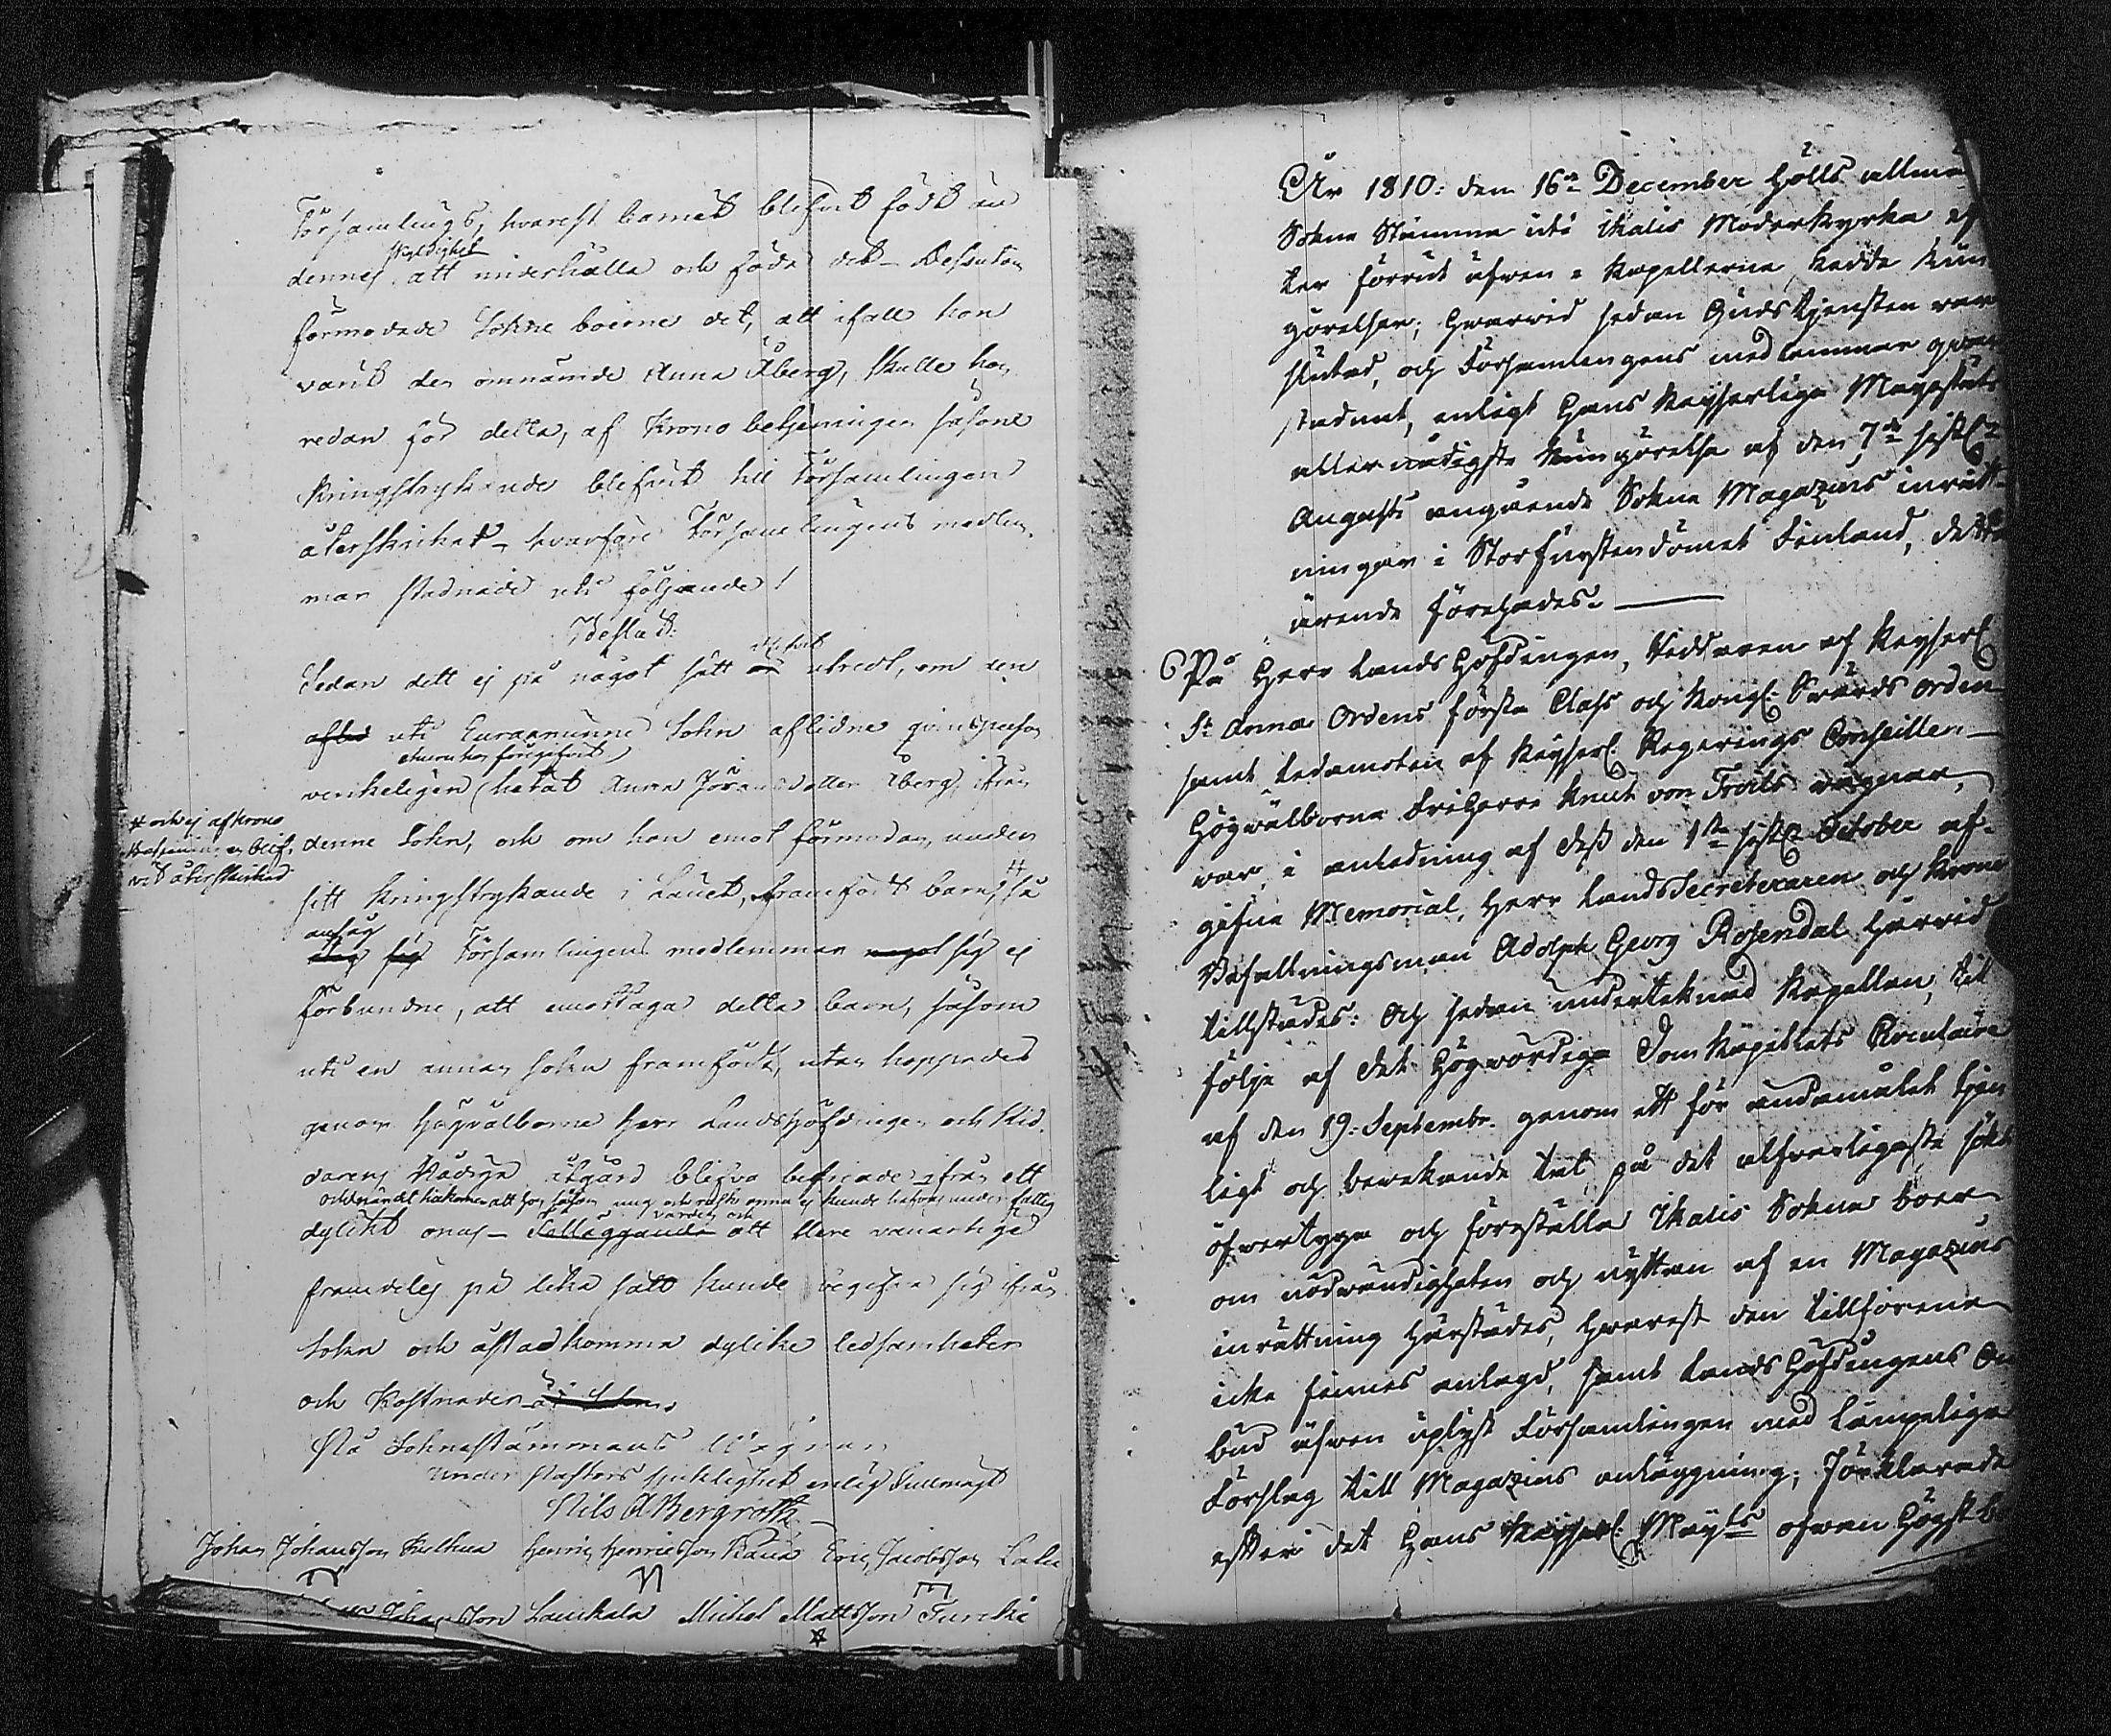 Församlings, hvarest barnet blifvit födt an
skyldighet
dennes att underhålla och föda det – Dessutom
förmodade Sokne boerne det, att ifall hon
varit den omnämde Anna Åberg, skulle hon
redan för detta, af Krono betjeningen såsom
kringstrykande blifvit till Församlingen
återskickad – hvarföre Församlingens medlem-
mar stadnade uti följande!
Beslut:
Sedan dett ej på något sätt utredt, om den
uti Euraåminne Sokn aflidne qvinsperson
verkeligen hetat Anna Åberg, ifrån
denne Sokn, och om hon emot förmodan, under
# och ej af Krono
Betjeningen blif-
vit återskickad
sitt kringstrykande i Landet, framfödt barn, # så
ansåg
Församlingens medlemmar sig ej
förbundne, att emottaga detta barn, såsom
uti en annan sokn framfödt, utan hoppades
genom Högvälborne Herr Landshöfdingen och Rid-
darens Nådiga åtgärd blifva befriade ifrån ett
dylikt onus – att flere vanartige
framdeles på lika sätt kunde begifva sig ifrån
Sokn och åstadkomma dylika ledsamheter
och kostnader
På Soknestämmans Vägnar
under Pastors sjuklighet enligt Fullmagt
Nils A Bergroth
Johan Johansson Kulhua Henric Henricsson Eric Jacobsson
Johansson Laurikala Michel Mattsson
År 1810: den 16de December hölls allmän
Sokne Stämma uti Ikalis Moderkyrka ef
ter förrut äfwen i Kapellerne skedde Kun
görelser; Hwarwid sedan Gudstjensten war
slutad, och Församlingens medlemmar qwar
stadnat, enligt Hans Keyserliga Mayestäts
allernådigste Kungörelse af den 7de sistl:
Augusti angående Sokne Magazins inrätt-
ningar i Storfurstendömet Finland, detta
ärende förehades. —
På Herr Lands Höfdingen, Riddaren af Keyserl:
St. Annæ Ordens första Class och Kongl: Swärds Orden
samt Ledamoten af Keyserl: Regerings Conseillen
Högwälborne Friherre Knut von Troils wägnar,
war, i anledning af dess den 1sta sistl: October af-
gifne Memorial, Herr Lands Secreteraren och Krono
Befallningsman Adolph Georg Rosendal härwid
tillstädes: Och sedan undertecknad Kapellan, till
följe af det Högwördige Dom Kapitlets Circulaire
af den 19: Septembr. genom ett för ändamålet tjen
ligt och bewekande tal på det alfwarligaste sökt
öfwertyga och föreställa Ikalis Sokne boer
om nödwändigheten och nyttan af en Magazins
inrättning härstädes, hwarest den tillförene
icke finnes anlagd, samt Lands Höfdingens Om
bud äfwen uplyst Församlingen med lämpeliga
Förslag till Magazins anläggning; Förklarade
efter det Hans Keyserl: Mayts ofwan Högst be